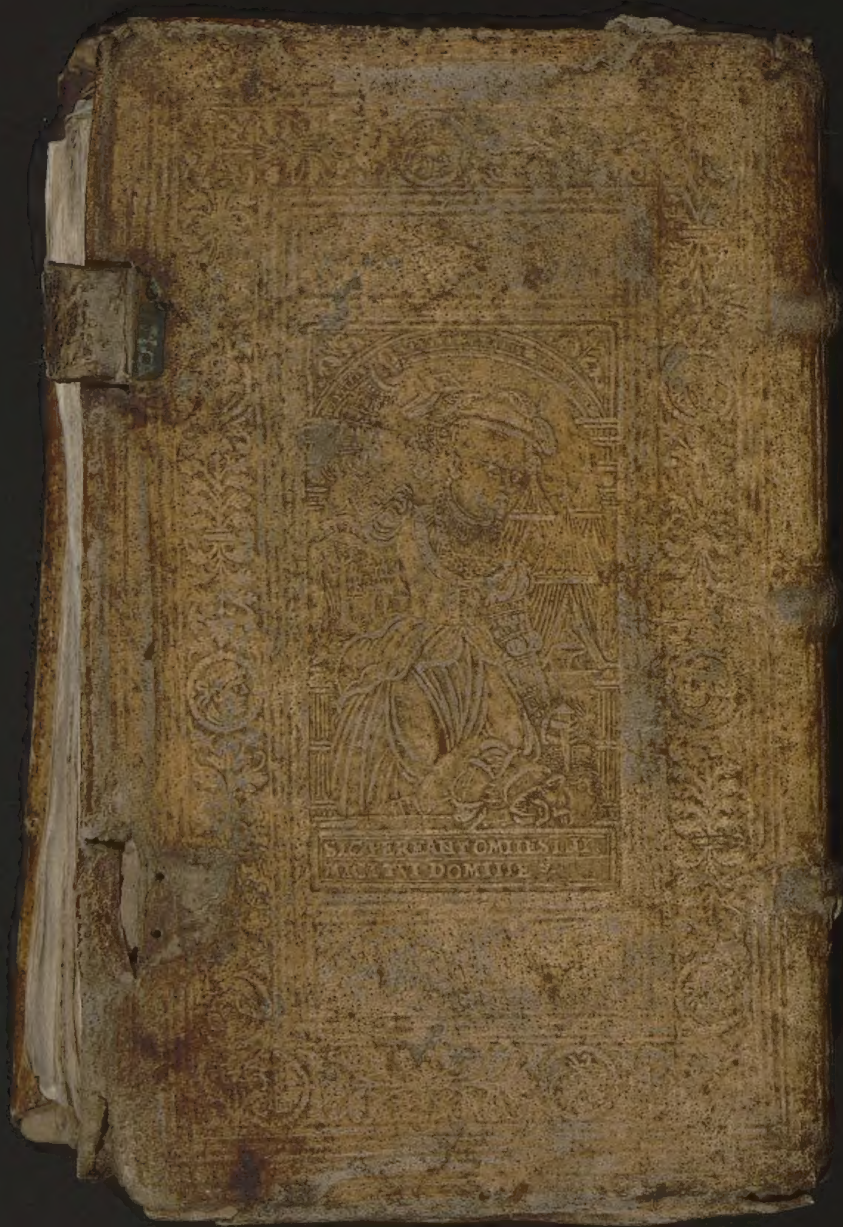 SIC PEREANT OMNES IN
MICI TVI DOMINE